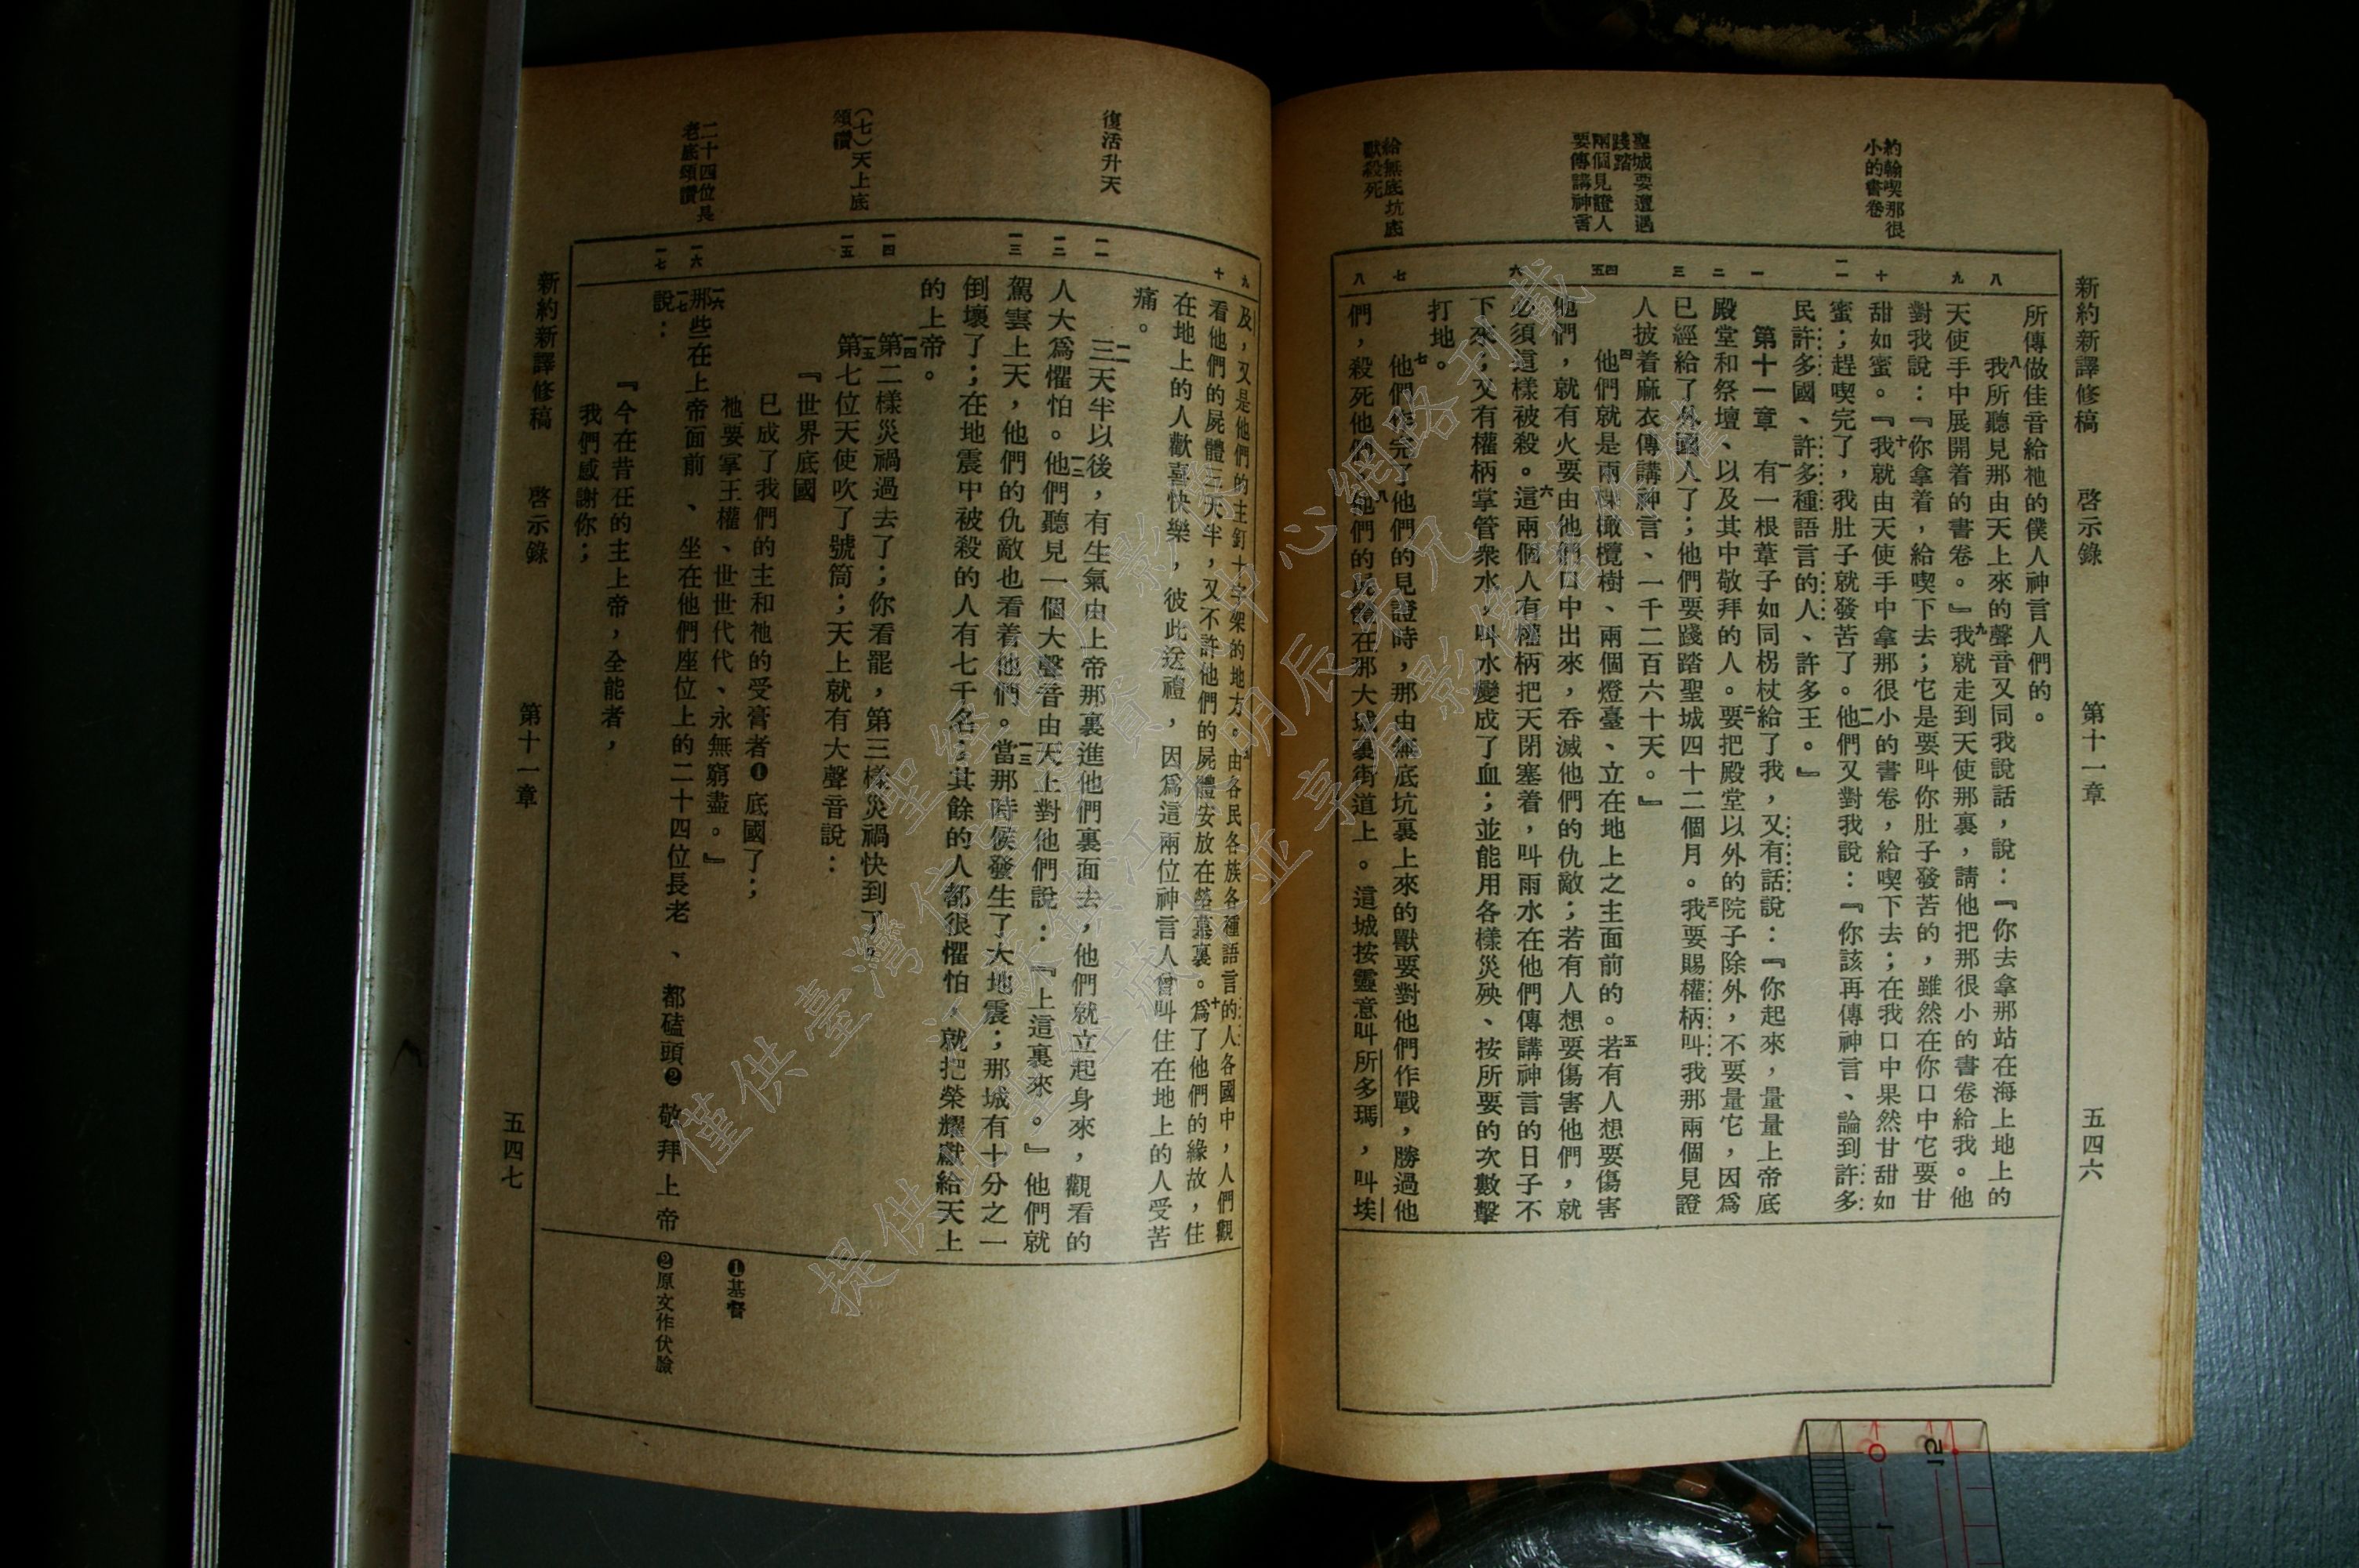 新約新譯修稿　啓示錄　第十一章　五四六
約翰喫那很
小的書卷
聖城要遭遇
踐踏
兩個見證人
要傳講神言
給無底坑底
獸殺死
八
九
十
一一
一
二
三
四
五
六
七
八
所傳做佳音給祂的僕人神言人們的。
八我所聽見那由天上來的聲音又同我說話，說：『你去拿那站在海上地上的
天使手中展開着的書卷。』九我就走到天使那裏，請他把那很小的書卷給我。他
對我說：『你拿着，給喫下去；它是要叫你肚子發苦的，雖然在你口中它要甘
甜如蜜。『十我就由天使手中拿那很小的書卷，給喫下去；在我口中果然甘甜如
蜜；趕喫完了，我肚子就發苦了。一一他們又對我說：『你該再傳神言、論到許多
民許多國、許多種語言的人、許多王。』
第十一章　一有一根葦子如同柺杖給了我，又有話說：『你起來，量量上帝底
殿堂和祭壇、以及其中敬拜的人。二要把殿堂以外的院子除外，不要量它，因爲
已經給了外國人了；他們要踐踏聖城四十二個月。三我要賜權柄叫我那兩個見證
人披着麻衣傳講神言、一千二百六十天。』
四他們就是兩棵橄欖樹、兩個燈臺、立在地上之主面前的。五若有人想要傷害
他們，就有火要由他們口中出來，吞滅他們的仇敵；若有人想要傷害他們，就
必須這樣被殺。六這兩個人有權柄把天閉塞着，叫雨水在他們傳講神言的日子不
下來；又有權柄掌管衆水，叫水變成了血；並能用各樣災殃、按所要的次數擊
打地。
七他們作完了他們的見證時，那由無底坑裏上來的獸要對他們作戰，勝過他
們，殺死他們。八他們的屍體在那大城裏街道上。這城按靈意叫所多瑪，叫埃
復活升天
（七）天上底
頌讚
二十四位長
老底頌讚
九
十
一一
一二
一三
一四
一五
一六
一七
及，又是他們的主釘十字架的地方。九由各民各族各種語言的人各國中，人們觀
看他們的屍體三天半，又不許他們的屍體安放在塋墓裏。十爲了他們的緣故，住
在地上的人歡喜快樂，彼此送禮，因爲這兩位神言人曾叫住在地上的人受苦
痛。
一一三天半以後，有生氣由上帝那裏進他們裏面去，他們就立起身來，觀看的
人大爲懼怕。一二他們聽見一個大聲音由天上對他們說：『上這裏來。』他們就
駕雲上天，他們的仇敵也看着他們。一三當那時候發生了大地震；那城有十分之一
倒壞了；在地震中被殺的人有七千名；其餘的人都很懼怕，就把榮耀獻給天上
的上帝。
一四第二樣災禍過去了；你看罷，第三樣災禍快到了。
一五第七位天使吹了號筒；天上就有大聲音說：
『世界底國
已成了我們的主和祂的受膏者❶底國了；
祂要掌王權、世世代代、永無窮盡。』
一六那些在上帝面前、坐在他們座位上的二十四位長老、都磕頭❷敬拜上帝
一七說：
『今在昔在的主上帝，全能者，
我們感謝你；
❶基督
❷原文作伏臉
新約新譯修稿　啓示錄　第十一章　五四七